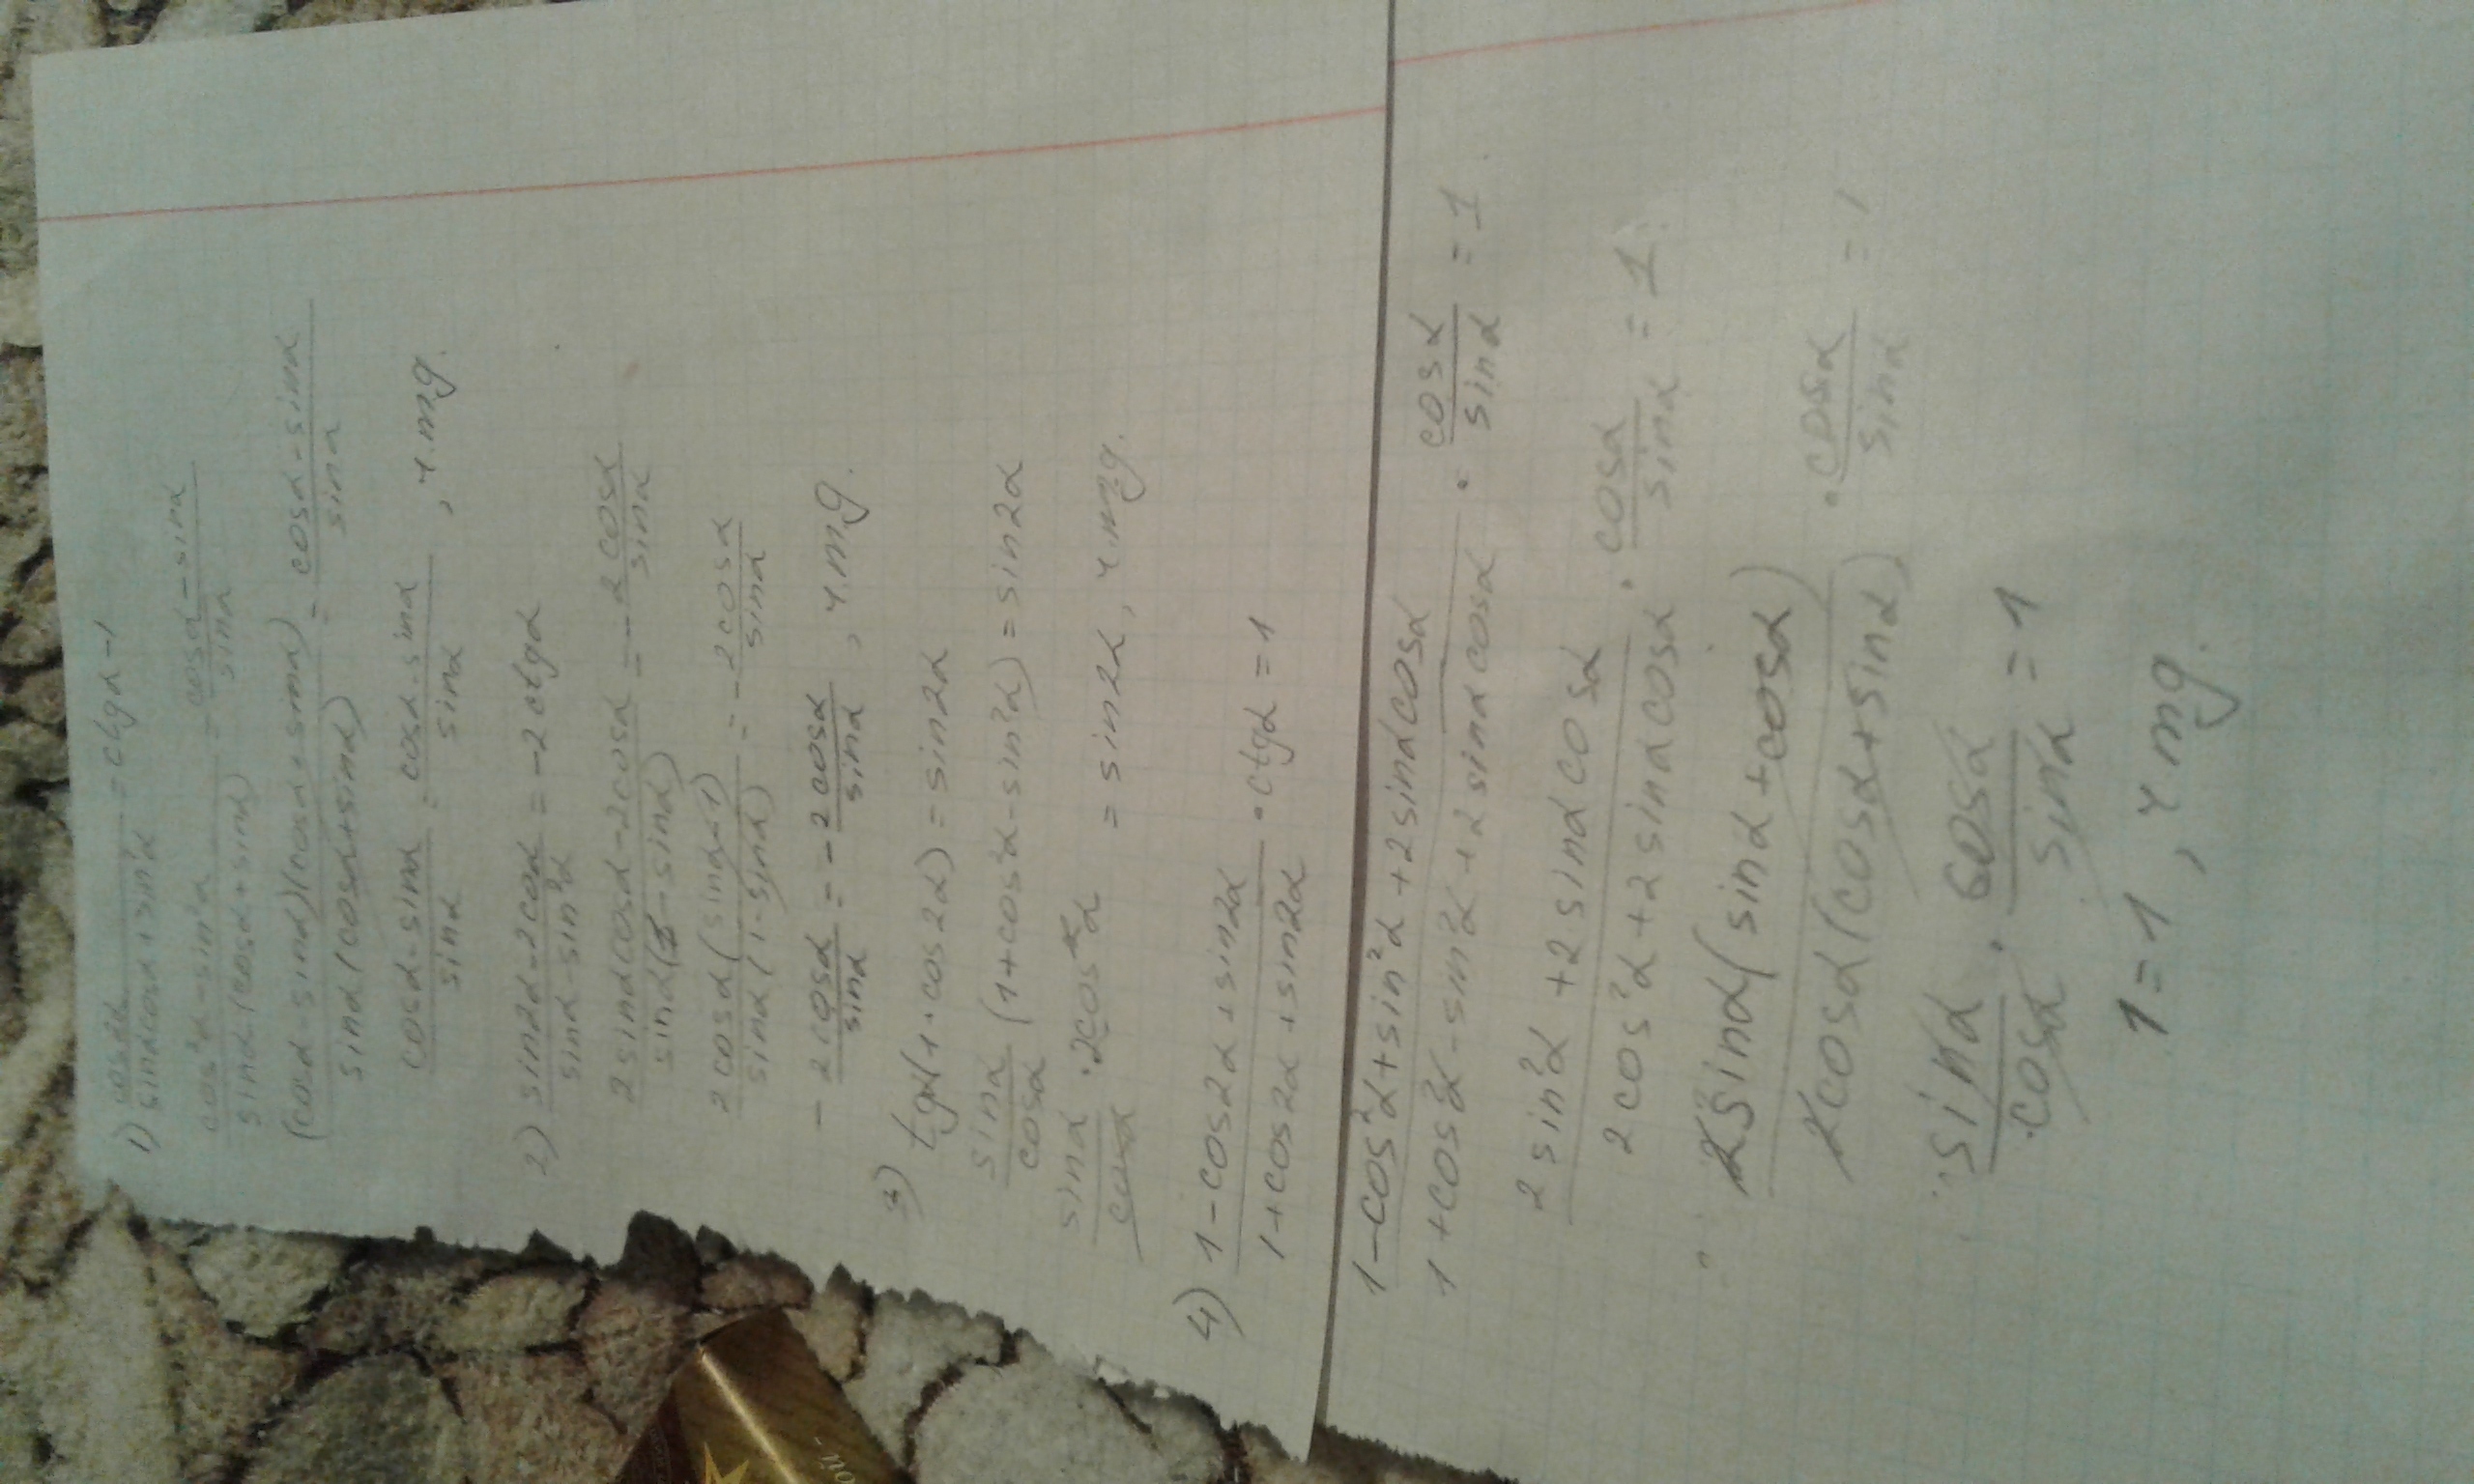 1) cos2α / sinαcosα+sin²α = ctgα-1
cos²α-sin²α / sinα(cosα+sinα) = cosα-sinα / sinα
(cosα-sinα)(cosα+sinα) / sinα(cosα+sinα) = cosα-sinα / sinα
cosα-sinα / sinα = cosα-sinα / sinα , ч.тд.
2) sin2α-2cosα / sinα-sin²α = -2ctgα
2sinαcosα-2cosα / sinα(1-sinα) = -2cosα / sinα
2cosα(sinα-1) / sinα(1-sinα) = -2cosα / sinα
-2cosα / sinα = -2cosα / sinα , ч.тд.
3) tgα(1+cos2α)=sin2α
sinα / cosα (1+cos²α-sin²α)=sin2α
sinα / cosα · 2cos²α = sin2α, ч.тд.
4) 1-cos2α+sin2α / 1+cos2α+sin2α · ctgα=1
1-cos²α+sin²α+2sinαcosα / 1+cos²α-sin²α+2sinαcosα · cosα / sinα =1
2sin²α+2sinαcosα / 2cos²α+2sinαcosα · cosα / sinα =1
2sinα(sinα+cosα) / 2cosα(cosα+sinα) · cosα / sinα =1
sinα / cosα · cosα / sinα =1
1=1, ч.тд.